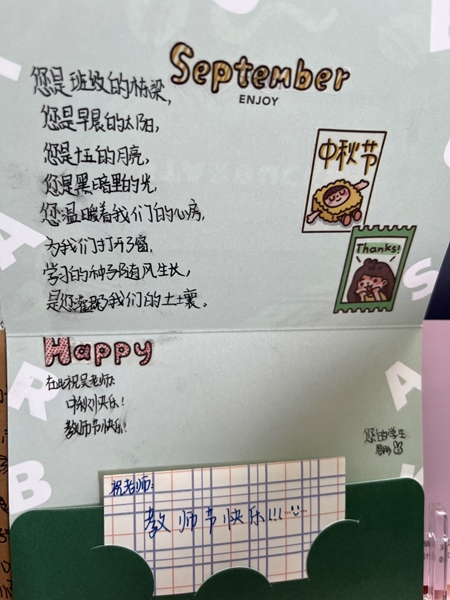 September
ENJOY
您是班级的栋梁，
您是早晨的太阳，
您是十五的月亮，
您是黑暗里的光，
您温暖着我们的心房，
为我们打开了窗，
学习的种子随风生长，
是您灌溉了我们的土壤。
中秋节
Thanks!
Happy
在此祝吴老师：
中秋快乐！
教师节快乐！
您的学生
祝老师：
教师节快乐!!!